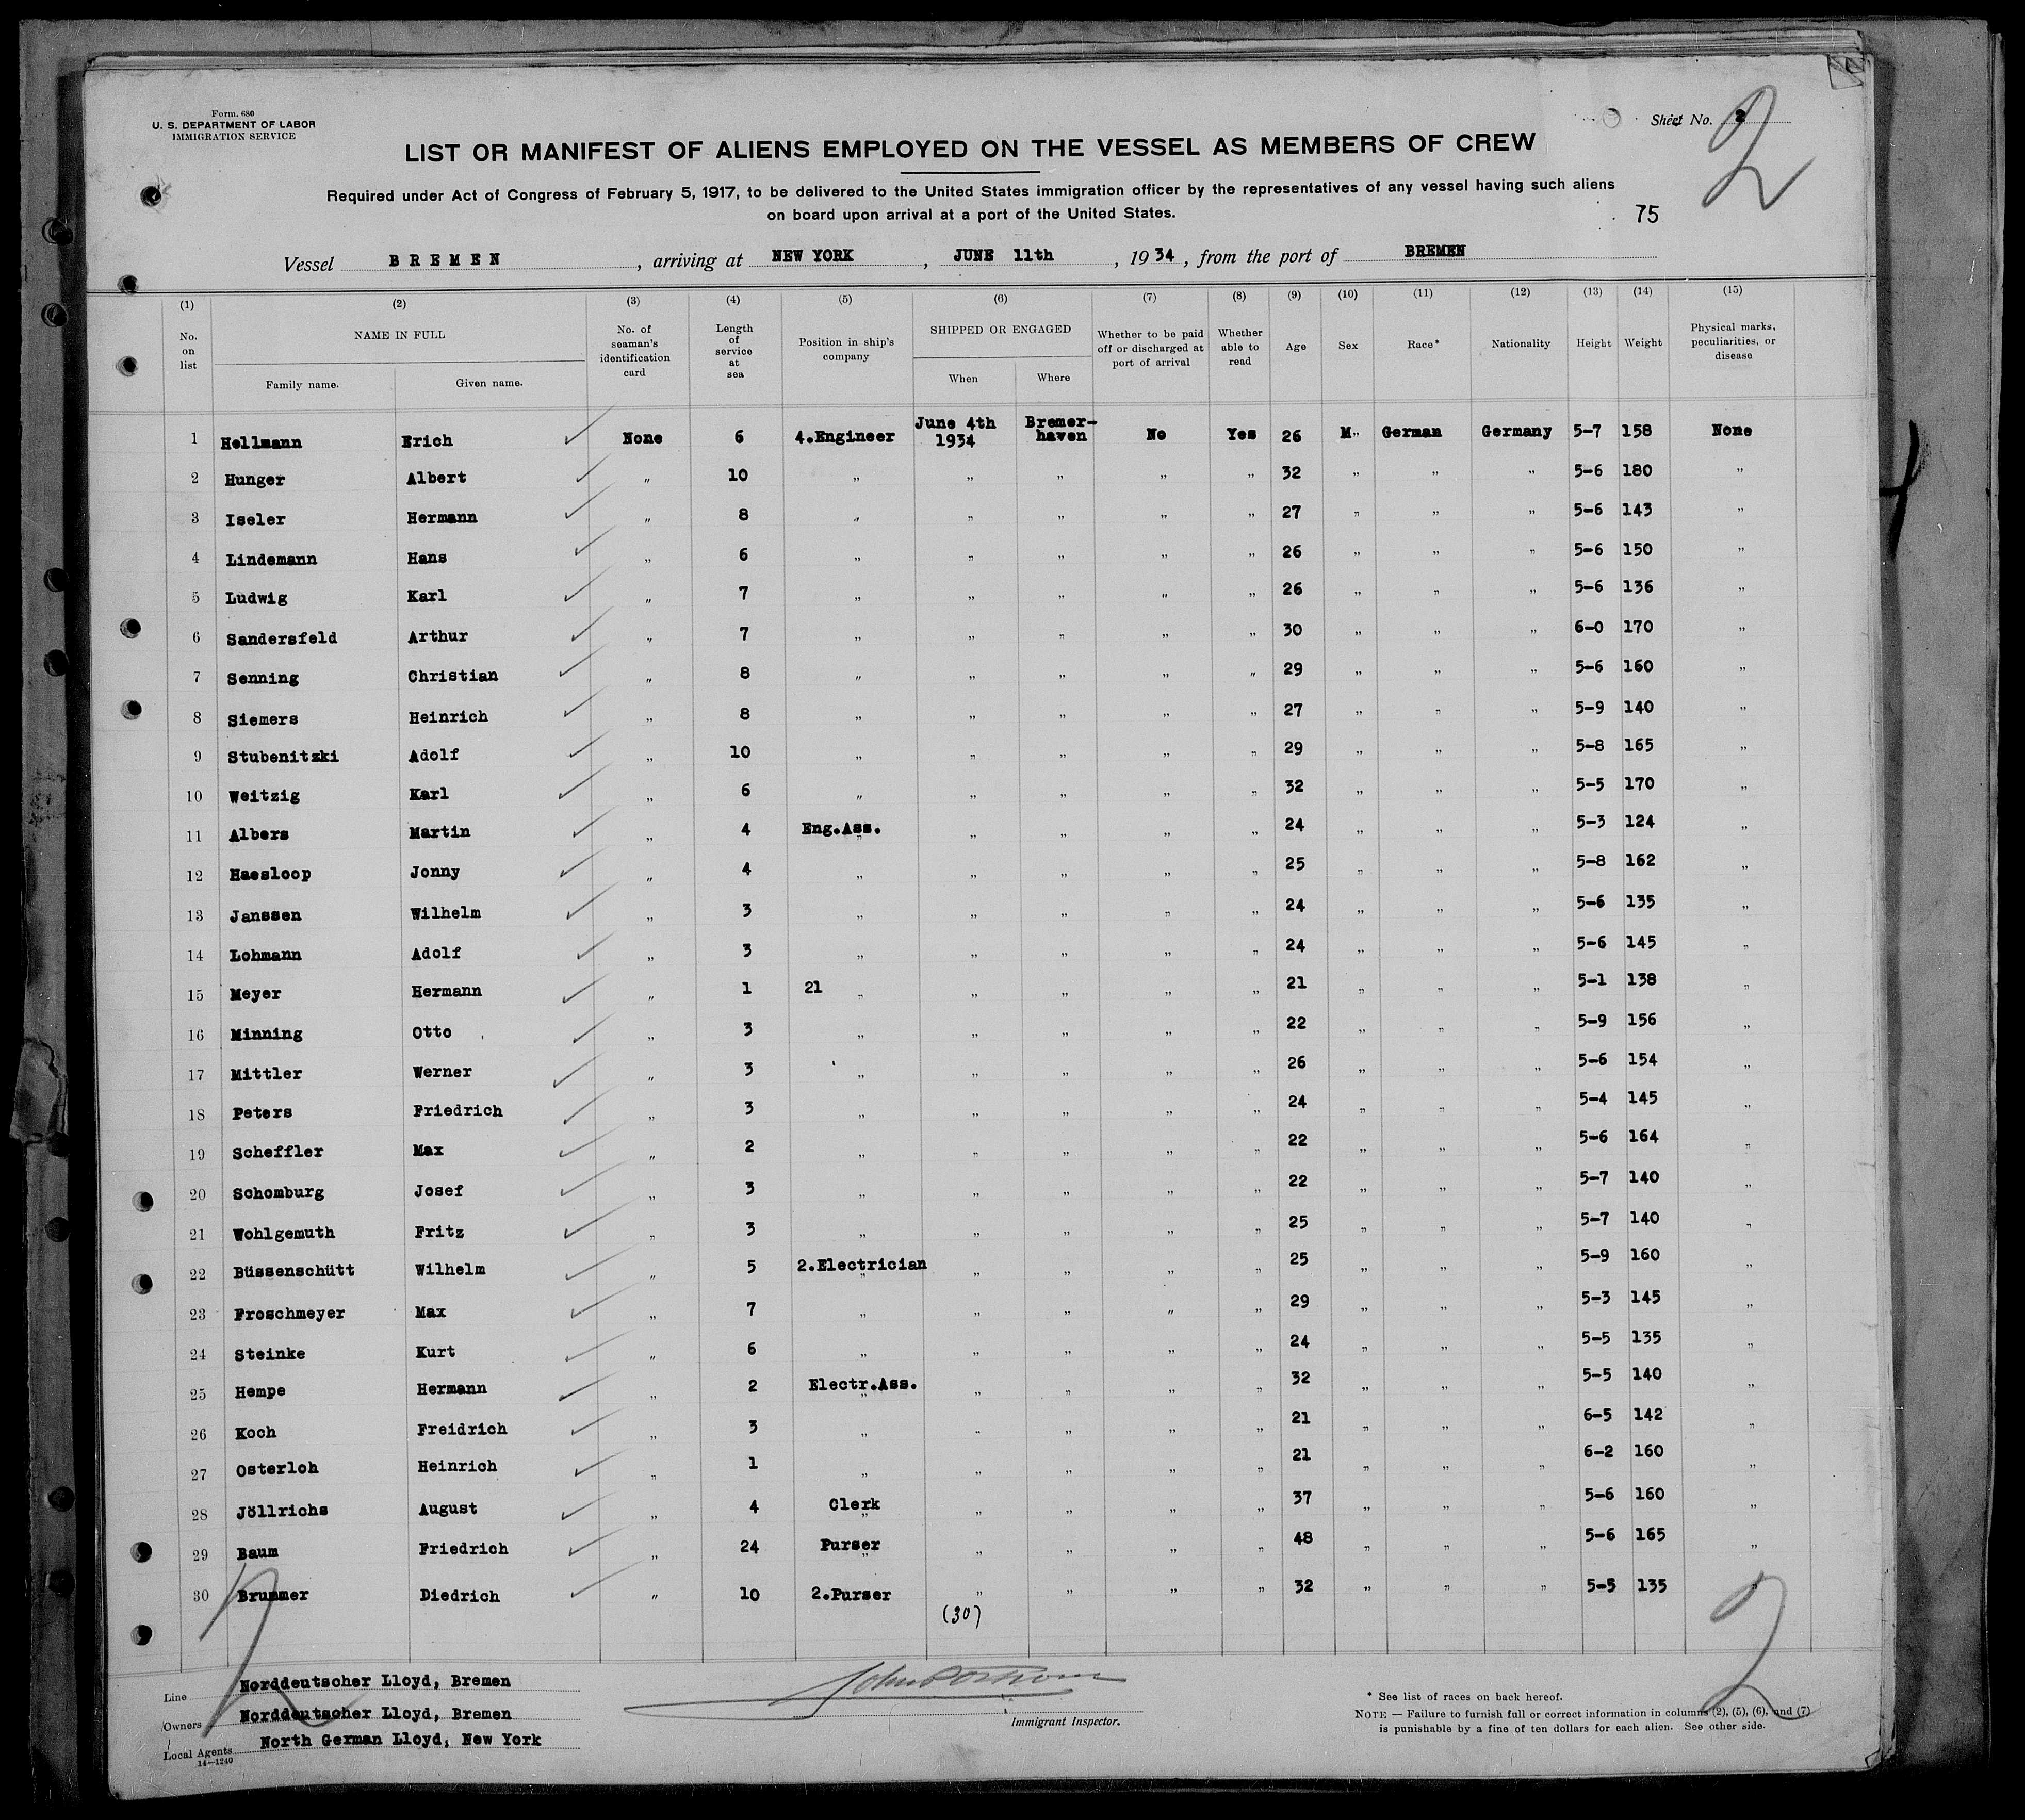 Form. 680
U. S. DEPARTMENT OF LABOR
IMMIGRATION SERVICE
Sheet No. 2
2
LIST OR MANIFEST OF ALIENS EMPLOYED ON THE VESSEL AS MEMBERS OF CREW
Required under Act of Congress of February 5, 1917, to be delivered to the United States immigration officer by the representatives of any vessel having such aliens
on board upon arrival at a port of the United States.
75
Vessel BREMEN, arriving at NEW YORK, JUNE 11th, 1934, from the port of BREMEN
(1) (2) (3) (4) (5) (6) (7) (8) (9) (10) (11) (12) (13) (14) (15)
No. on list NAME IN FULL Family name. Given name. No. of seaman's identification card Length of service at sea Position in ship's company SHIPPED OR ENGAGED When Where Whether to be paid off or discharged at port of arrival Whether able to read Age Sex Race* Nationality Height Weight Physical marks, peculiarities, or disease
1 Hellmann Erich None 6 4.Engineer June 4th 1934 Bremer-haven No Yes 26 M" German Germany 5-7 158 None
2 Hunger Albert " 10 " " " " " 32 " " " 5-6 180 "
3 Iseler Hermann " 8 " " " " " 27 " " " 5-6 143 "
4 Lindemann Hans " 6 " " " " " 26 " " " 5-6 150 "
5 Ludwig Karl " 7 " " " " " 26 " " " 5-6 136 "
6 Sandersfeld Arthur " 7 " " " " " 30 " " " 6-0 170 "
7 Senning Christian " 8 " " " " " 29 " " " 5-6 160 "
8 Siemers Heinrich " 8 " " " " " 27 " " " 5-9 140 "
9 Stubenitzki Adolf " 10 " " " " " 29 " " " 5-8 165 "
10 Weitzig Karl " 6 " " " " " 32 " " " 5-5 170 "
11 Albers Martin " 4 Eng.Ass. " " " " " 24 " " " 5-3 124 "
12 Haesloop Jonny " 4 " " " " " 25 " " " 5-8 162 "
13 Janssen Wilhelm " 3 " " " " " 24 " " " 5-6 135 "
14 Lohmann Adolf " 3 " " " " " 24 " " " 5-6 145 "
15 Meyer Hermann " 1 21 " " " " " 21 " " " 5-1 138 "
16 Minning Otto " 3 " " " " " 22 " " " 5-9 156 "
17 Mittler Werner " 3 " " " " " 26 " " " 5-6 154 "
18 Peters Friedrich " 3 " " " " " 24 " " " 5-4 145 "
19 Scheffler Max " 2 " " " " " 22 " " " 5-6 164 "
20 Schomburg Josef " 3 " " " " " 22 " " " 5-7 140 "
21 Wohlgemuth Fritz " 3 " " " " " 25 " " " 5-7 140 "
22 Büssenschütt Wilhelm " 5 2.Electrician " " " " " 25 " " " 5-9 160 "
23 Froschmeyer Max " 7 " " " " " 29 " " " 5-3 145 "
24 Steinke Kurt " 6 " " " " " 24 " " " 5-5 135 "
25 Hempe Hermann " 2 Electr.Ass. " " " " " 32 " " " 5-5 140 "
26 Koch Freidrich " 3 " " " " " 21 " " " 6-5 142 "
27 Osterloh Heinrich " 1 " " " " " 21 " " " 6-2 160 "
28 Jöllrichs August " 4 Clerk " " " " " 37 " " " 5-6 160 "
29 Baum Friedrich " 24 Purser " " " " " 48 " " " 5-6 165 "
30 Brummer Diedrich " 10 2.Purser " " " " 32 " " " 5-5 135 "
(30)
2 2
Line Norddeutscher Lloyd, Bremen
Owners Norddeutscher Lloyd, Bremen
Local Agents North German Lloyd, New York
14—1240
Immigrant Inspector.
* See list of races on back hereof.
NOTE — Failure to furnish full or correct information in columns (2), (5), (6), and (7)
is punishable by a fine of ten dollars for each alien. See other side.